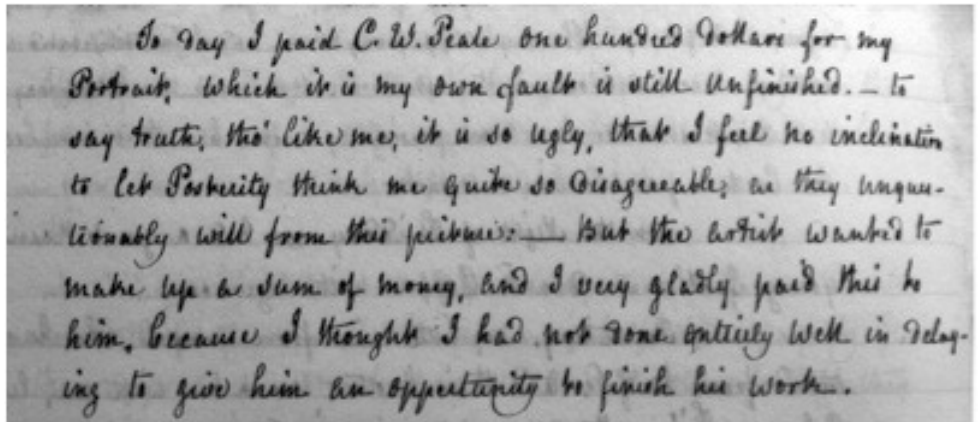 To day I paid C. W. Peale one hundred dollars for my
Portrait, which it is my own fault is still unfinished. – to
say truth, tho' like me, it is so ugly, that I feel no inclination
to let Posterity think me quite so disagreeable, as they unques-
tionably will from this picture: — But the artist wanted to
make up a sum of money, and I very gladly paid this to
him, because I thought I had not done entirely well in delay-
ing to give him an opportunity to finish his work.